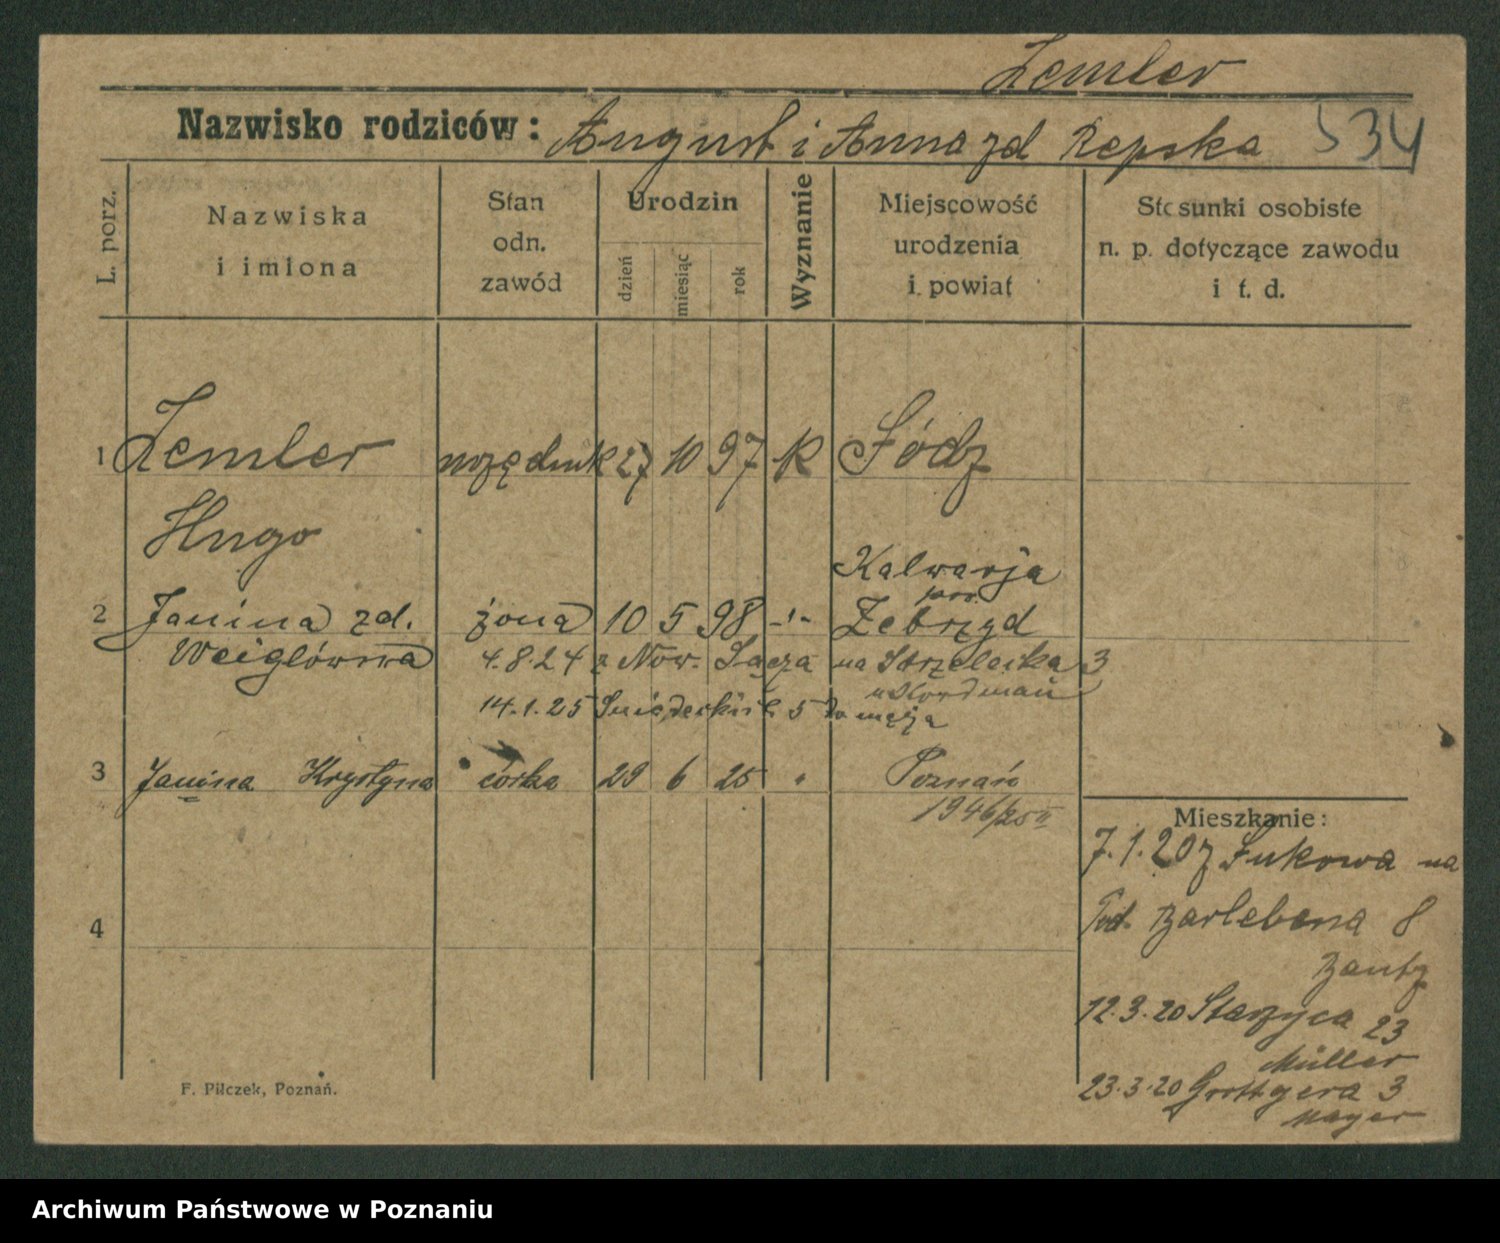 Zemler
Nazwisko rodziców: August i Anna zd Repska 534
L. porz.
Nazwiska
i imiona
Stan
odn.
zawód
Urodzin
dzień
miesiąc
rok
Wyznanie
Miejscowość
urodzenia
i powiat
Stosunki osobiste
n. p. dotyczące zawodu
i t. d.
1 Zemler urzędnik 27 10 97 K Łódz
Hugo
Kalwarja
2 Janina zd. żona 10 5 98 -"- Zebrzyd
Weiglówna 4.8.24 z Now. Sącza na Strzelecka 3
14.1.25 Śniadeckich 5 do męża
3 Janina Krystyna córka 29 6 25 " Poznań
1946/25
Mieszkanie:
7.1.20 z Łukowa na
Pod. Barlebena 8
12.3.20 Staszyca 23
Müller
23.3.20 Grottgera 3
Mayer
4
F. Pilczek, Poznań.
Archiwum Państwowe w Poznaniu